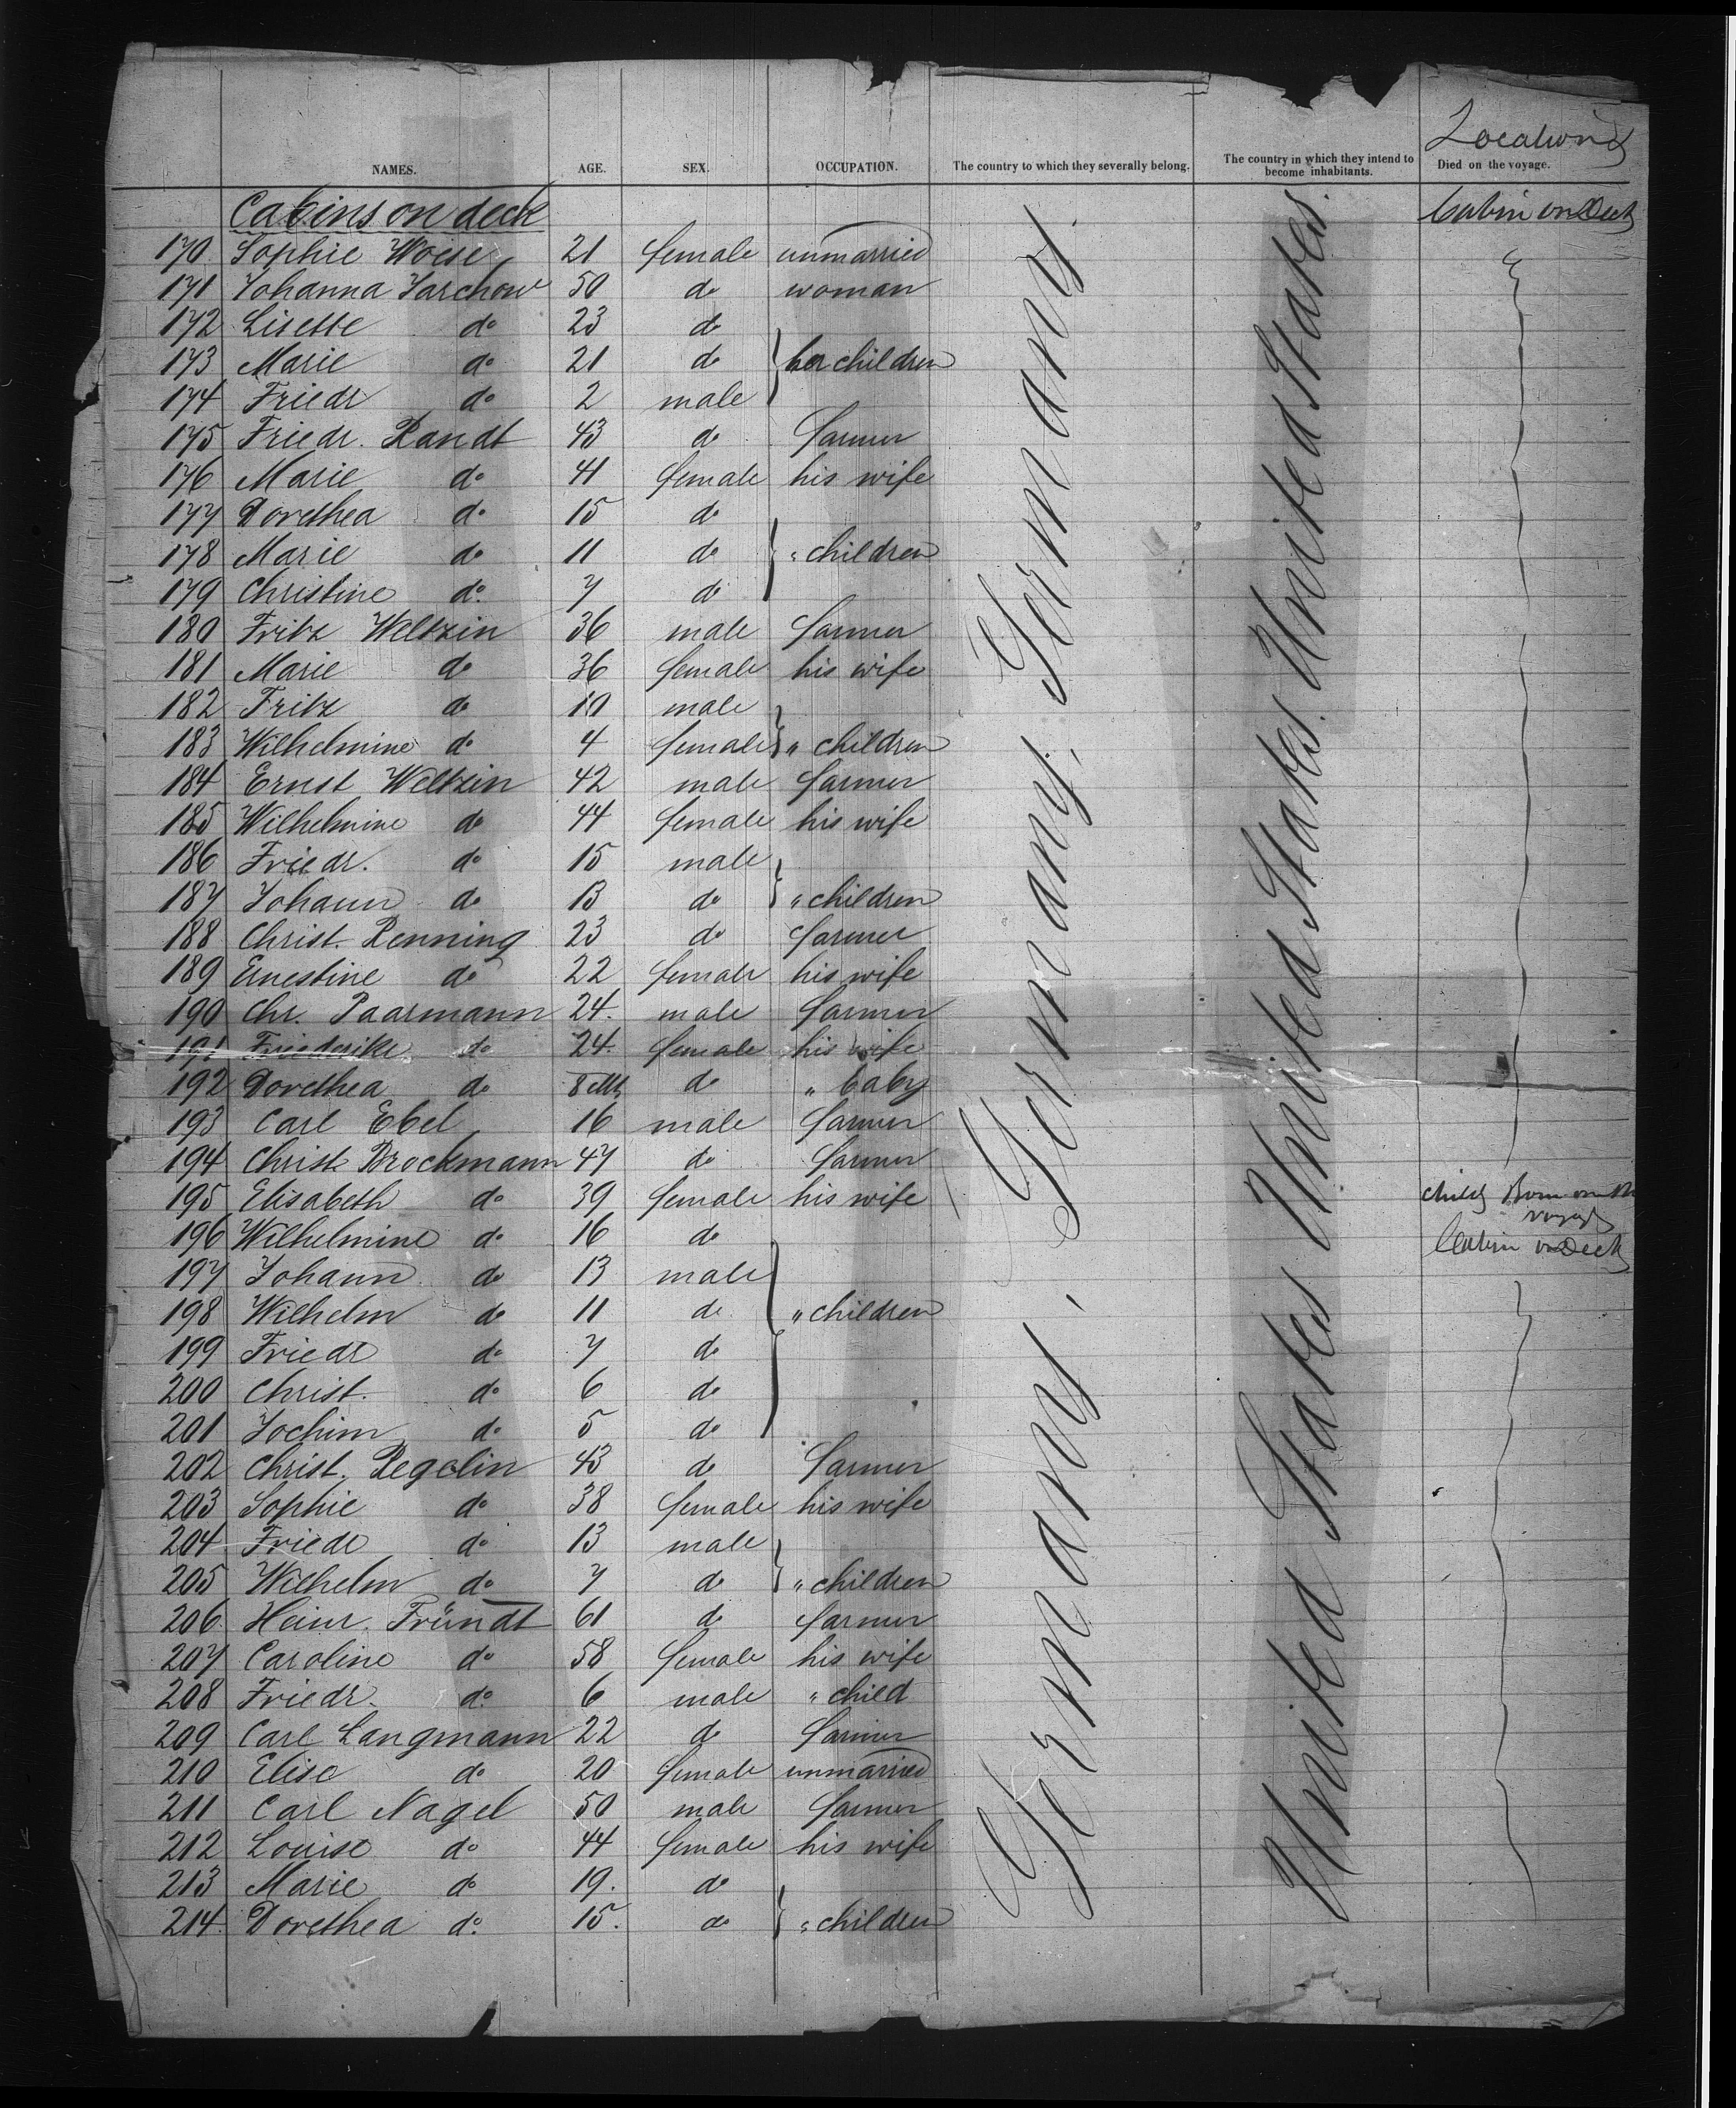 Locations
NAMES. AGE. SEX. OCCUPATION. The country to which they severally belong. The country in which they intend to become inhabitants. Died on the voyage.
Cabins on deck Cabin on Deck
170 Sophie Woese 21 female unmarried
171 Johanna Jarchow 50 do woman
172 Lisette do 23 do
173 Marie do 21 do her children
174 Friedr do 2 male
175 Friedr. Randt 43 do farmer
176 Marie do 41 female his wife
177 Dorethea do 15 do
178 Marie do 11 do " children
179 Christine do 7 do
180 Fritz Weltzin 36 male farmer
181 Marie do 36 female his wife
182 Fritz do 10 male
183 Wilhelmine do 4 female " children
184 Ernst Weltzin 42 male farmer
185 Wilhelmine do 44 female his wife
186 Friedr. do 15 male
187 Johann do 13 do " children
188 Christ. Renning 23 do farmer
189 Ernestine do 22 female his wife
190 Chr. Paarmann 24. male farmer
191 Friederike do 24. female his wife
192 Dorethea do 8 Mth do " baby
193 Carl Ebel 16 male farmer
194 Christ Brockmann 47 do farmer
195 Elisabeth do 39 female his wife child Born on the voyage
196 Wilhelmine do 16 do Cabin on Deck
197 Johann do 13 male
198 Wilhelm do 11 do " children
199 Friedr do 7 do
200 Christ. do 6 do
201 Jochim do 5 do
202 Christ. Regelin 43 do farmer
203 Sophie do 38 female his wife
204 Friedr do 13 male
205 Wilhelm do 7 do " children
206 Heinr. Fründt 61 do farmer
207 Caroline do 58 female his wife
208 Friedr. do 6 male " child
209 Carl Langmann 22 do farmer
210 Elise do 20 female unmarried
211 Carl Nagel 50 male farmer
212 Louise do 44 female his wife
213 Marie do 19. do
214 Dorethea do. 15. do " children
Germany. Germany. Germany.
United States United States. United States.